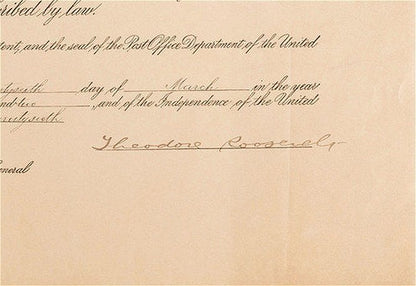 ribed by law.
tent, and the seal of the Post Office Department, of the United
tysixth day of March in the year
nd two , and of the Independence of the United
entysixth
Theodore Roosevelt
eneral